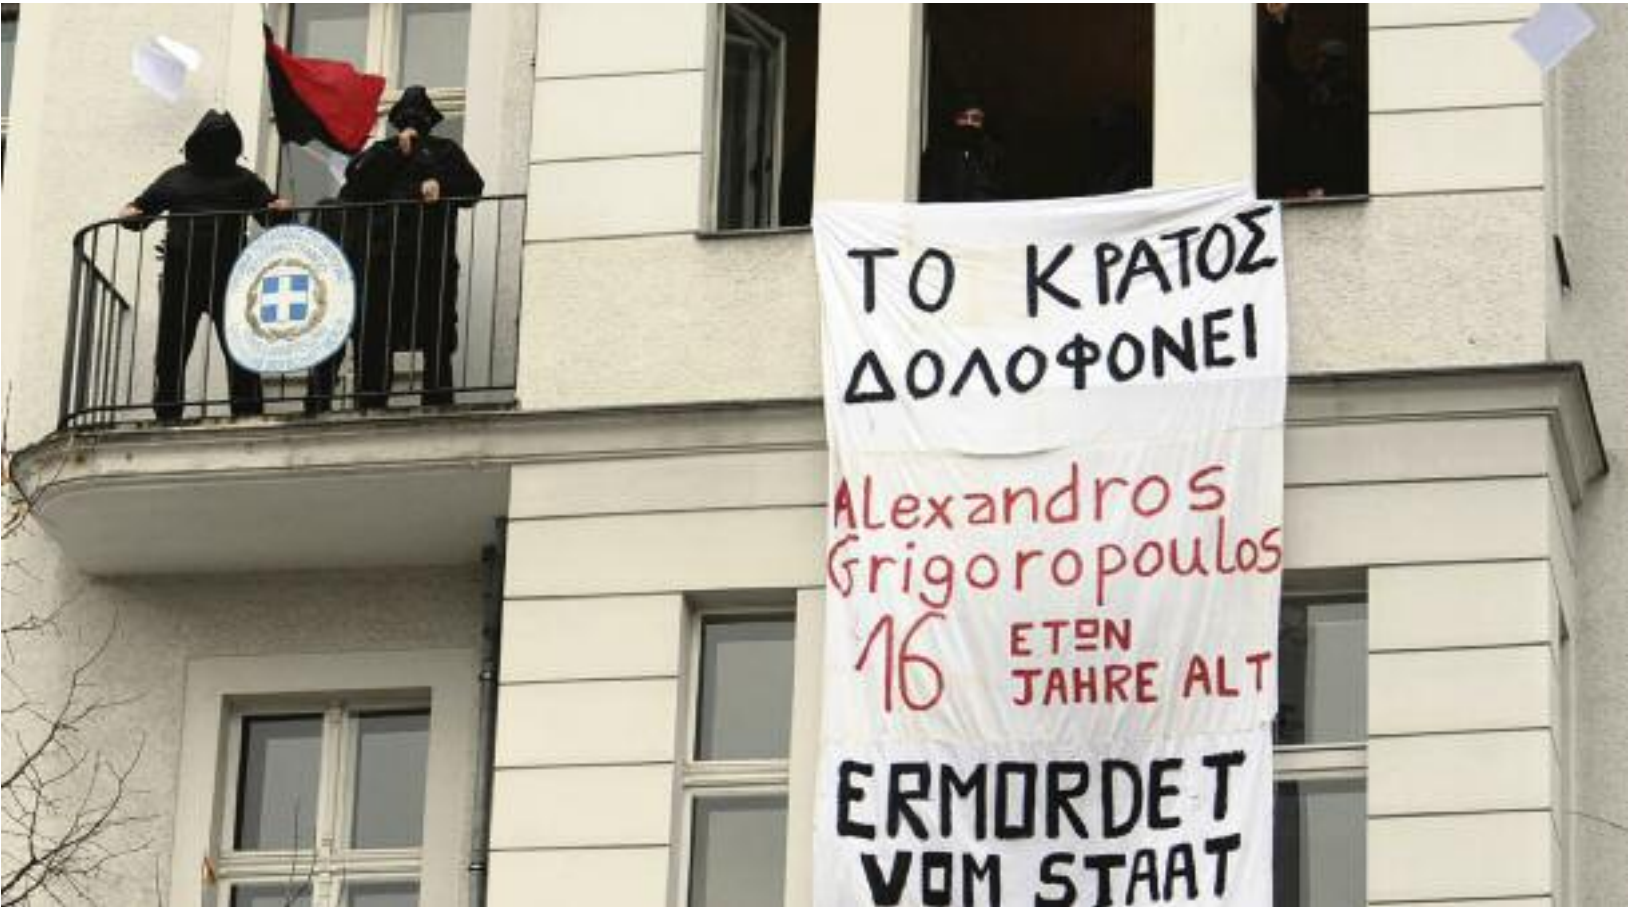 ΤΟ ΚΡΑΤΟΣ
ΔΟΛΟΦΟΝΕΙ
Alexandros
Grigoropoulos
16 ΕΤΩΝ
JAHRE ALT
ERMORDET
VOM STAAT